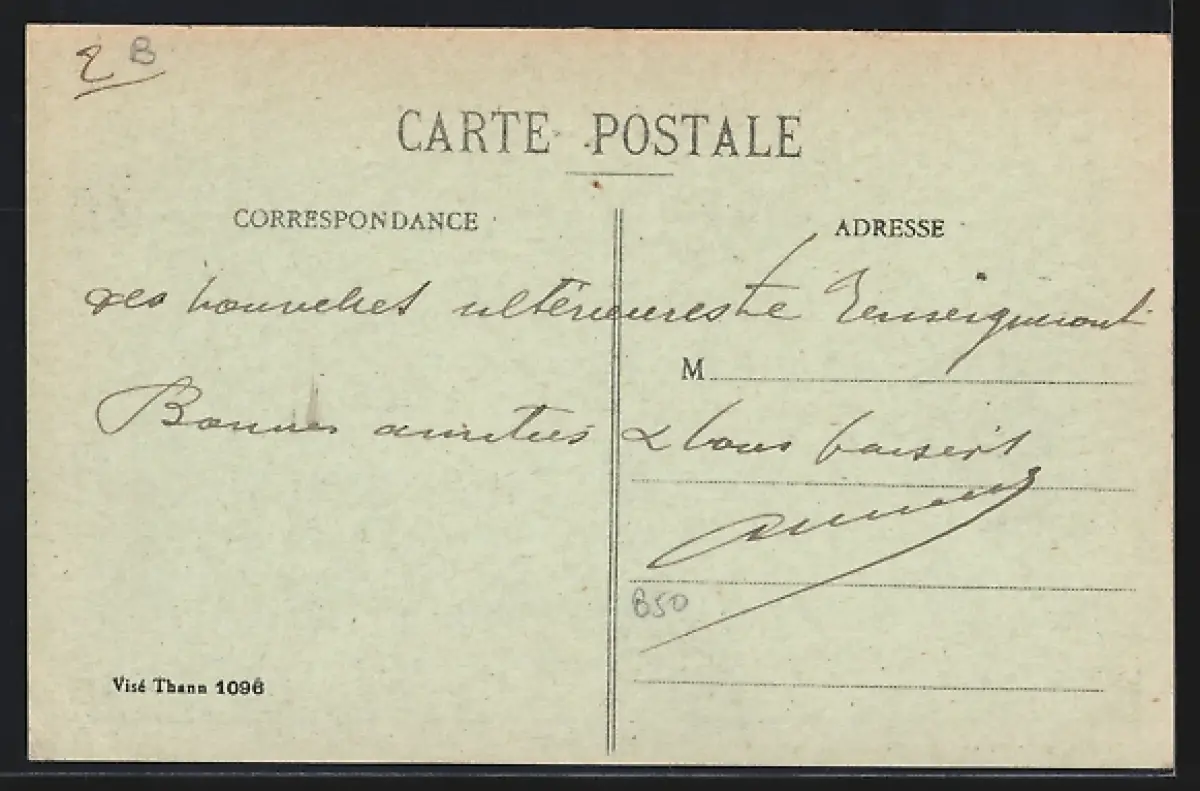 2 B
CARTE POSTALE
CORRESPONDANCE
ADRESSE
des nouvelles ultérieures te renseigneront
M
Bonnes amitiés & bons baisers
B50
Visé Thann 1096